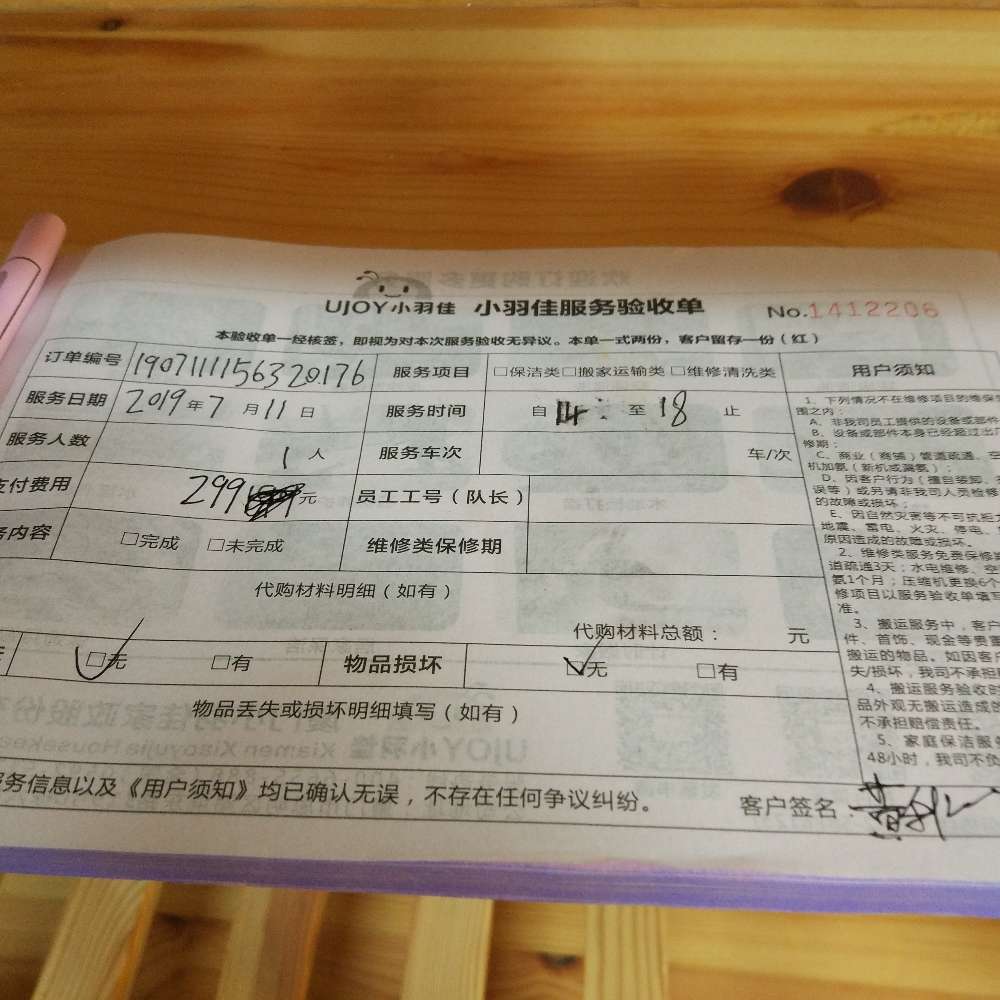 UJOY小羽佳 小羽佳服务验收单 No.1412206
本验收单一经核签，即视为对本次服务验收无异议。本单一式两份，客户留存一份（红）
订单编号 1907111156320176 服务项目 □保洁类□搬家运输类 □维修清洗类 用户须知
服务日期 2019年7月11日 服务时间 自14:至18止
服务人数 1人 服务车次 车/次
支付费用 299元 员工工号（队长）
务内容 □完成 □未完成 维修类保修期
代购材料明细（如有）
代购材料总额： 元
□无 □有 物品损坏 □无 □有
物品丢失或损坏明细填写（如有）
服务信息以及《用户须知》均已确认无误，不存在任何争议纠纷。 客户签名：
1、下列情况不在维修项目的维保
围之内：
A、非我司员工提供的设备或部件
B、设备或部件本身已经超过出
修期；
C、商业（商铺）管道疏通、空
机加氨（新机或漏氨）；
D、因客户行为（擅自装卸、
误等）或另请非我司人员检修
的故障或损坏；
E、因自然灾害等不可抗拒
地震、雷电、火灾、停电、
原因造成的故障或损坏。
2、维修类服务免费保修
道疏通3天；水电维修、空
氨1个月；压缩机更换6个
修项目以服务验收单填写
准。
3、搬运服务中，客户
件、首饰、现金等贵重
搬运的物品。如因客户
失/损坏，我司不承担
4、搬运服务验收时
品外观无搬运造成的
不承担赔偿责任。
5、家庭保洁服务
48小时，我司不负